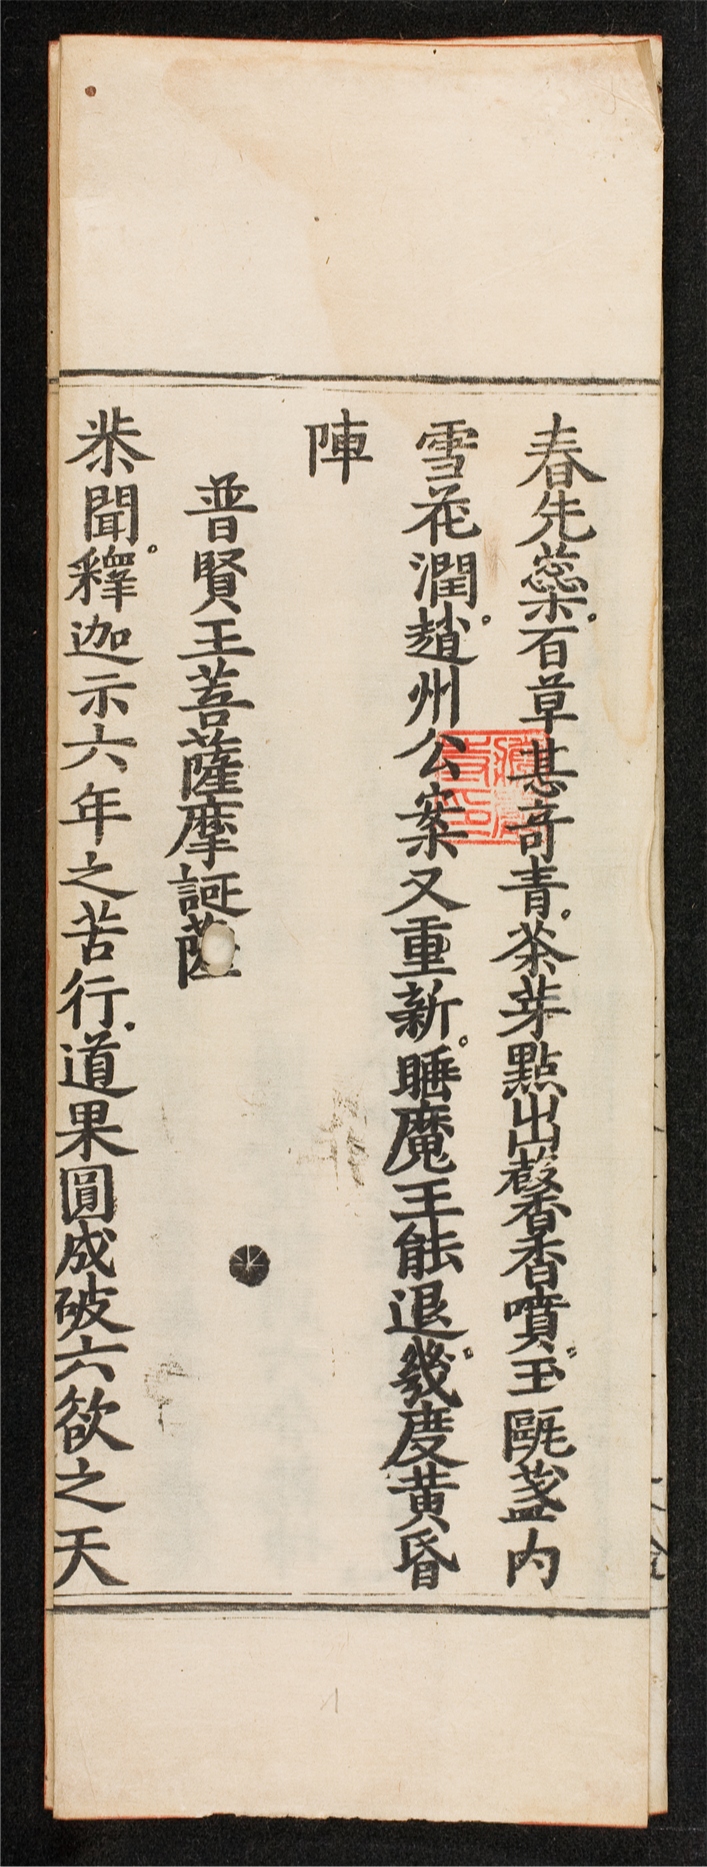 春先蘂。百草甚奇青。茶芽點出馨香香噴。玉甌盞內
雪花潤。趙州公案又重新。睡魔王能退。幾度黃昏
陣
普賢王菩薩摩訶薩
恭聞。釋迦示六年之苦行。道果圓成破六欲之天